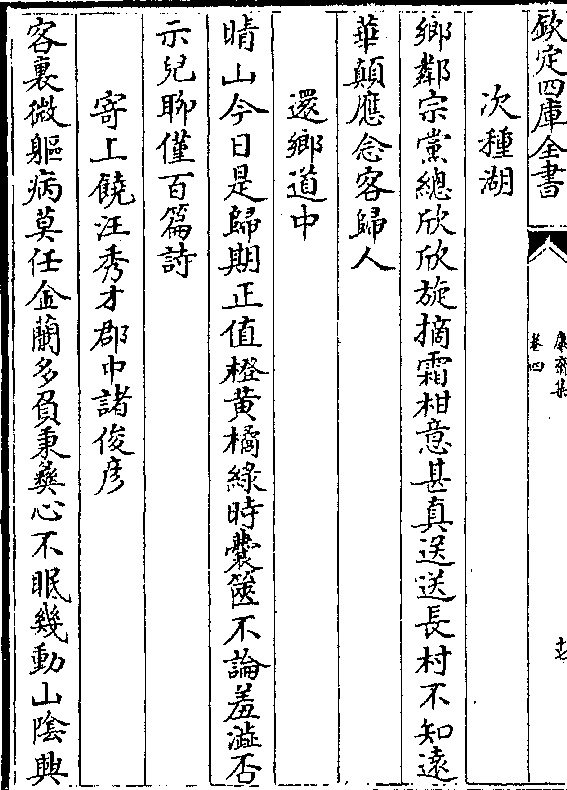 欽定四庫全書
康齋集
卷四
次種湖
鄉鄰宗黨總欣欣旋摘霜柑意甚真送送長村不知遠
華顛應念客歸人
還鄉道中
晴山今日是歸期正值橙黃橘綠時囊篋不論羞澁否
示兒聊僅百篇詩
寄上饒汪秀才郡中諸俊彦
客裏微軀病莫任金蘭多負秉彝心不眠幾動山陰興